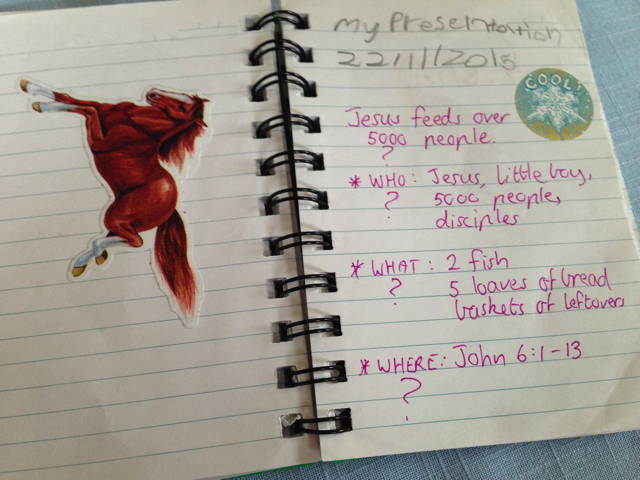 My Presentation
22/11/2015
COOL!
Jesus feeds over
5000 people.
?
* WHO: Jesus, little boy,
? 5000 people,
disciples
* WHAT: 2 fish
? 5 loaves of bread
baskets of leftovers
* WHERE: John 6:1-13
?